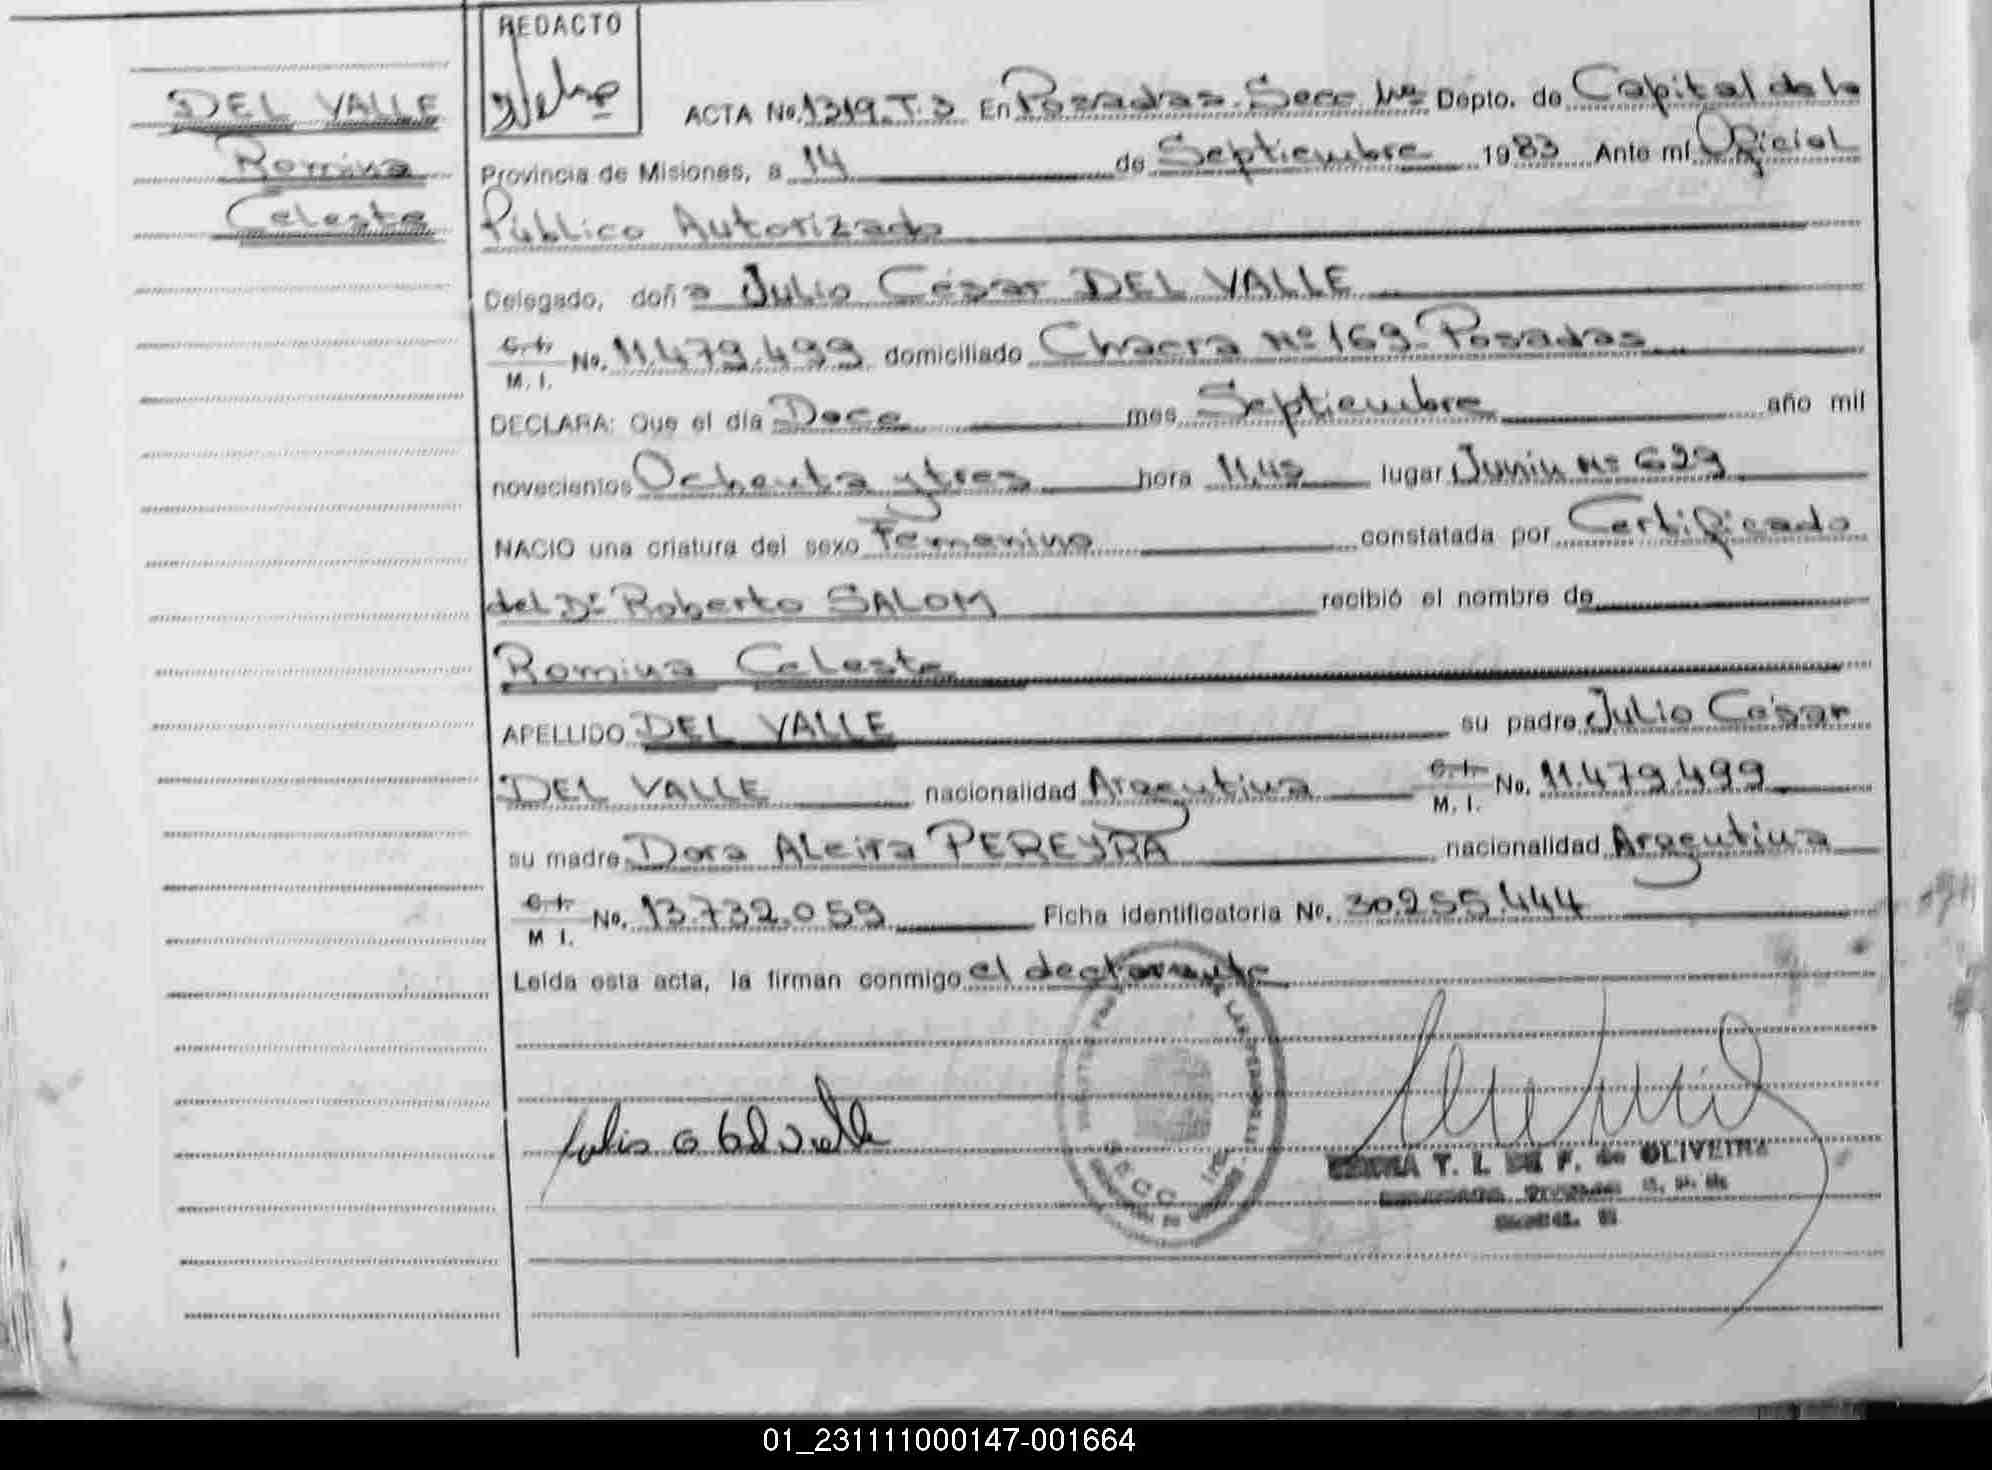 REDACTO
DEL VALLE
Romina
Celeste
ACTA No. 1319. T. 3 En Posadas. Secc. 1ra Depto. de Capital de la
Provincia de Misiones, a 14 de Septiembre 1983 Ante mí Oficial
Público Autorizado
Delegado, doña Julio César DEL VALLE
C. I. M. I. No. 11.479.499 domiciliado Chacra Nº 169. Posadas
DECLARA: Que el día Doce mes Septiembre año mil
novecientos Ochenta y tres hora 11,45 lugar Junín Nº 629
NACIO una criatura del sexo Femenino constatada por Certificado
del Dr. Roberto SALOM recibió el nombre de
Romina Celeste
APELLIDO DEL VALLE su padre Julio César
DEL VALLE nacionalidad Argentina C. I. M. I. No. 11.479.499
su madre Dora Alcira PEREYRA nacionalidad Argentina
C. I. M. I. No. 13.732.059 Ficha identificatoria Nº. 30.255.444
Leída esta acta, la firman conmigo el declarante
T. I. DE F. de OLIVEIRA
01_231111000147-001664